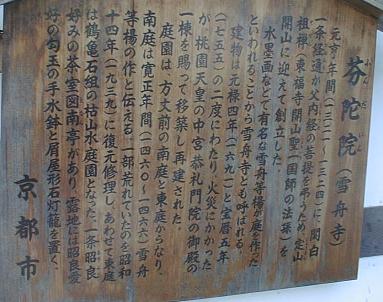 芬陀院（雪舟寺）
ふんだいん
元亨年間（一三二一〜一三二四）に、関白
一条経通が父内経の菩提を弔うため、定山
祖禅（東福寺開山聖一国師の法孫）を
開山に迎えて創立した。
水墨画などで有名な雪舟等楊が庭を作った
といわれることから雪舟寺とも呼ばれる。
建物は元禄四年（一六九一）と宝暦五年
（一七五五）の二度にわたり、火災にかかった
が桃園天皇の中宮恭礼門院の御殿の
一棟を賜って移築し再建された。
庭園は、方丈前の南庭と東庭からなり、
南庭は寛正年間（一四六〇〜一四六六）雪舟
等楊の作と伝える。一部荒れていたのを昭和
十四年（一九三九）に復元修理し、あわせて東庭
は鶴亀石組の枯山水庭園となった。一条昭良
好みの茶室図南亭があり、露地には昭良愛
好の勾玉の手水鉢と屑屋形石灯籠を置く。
京都市